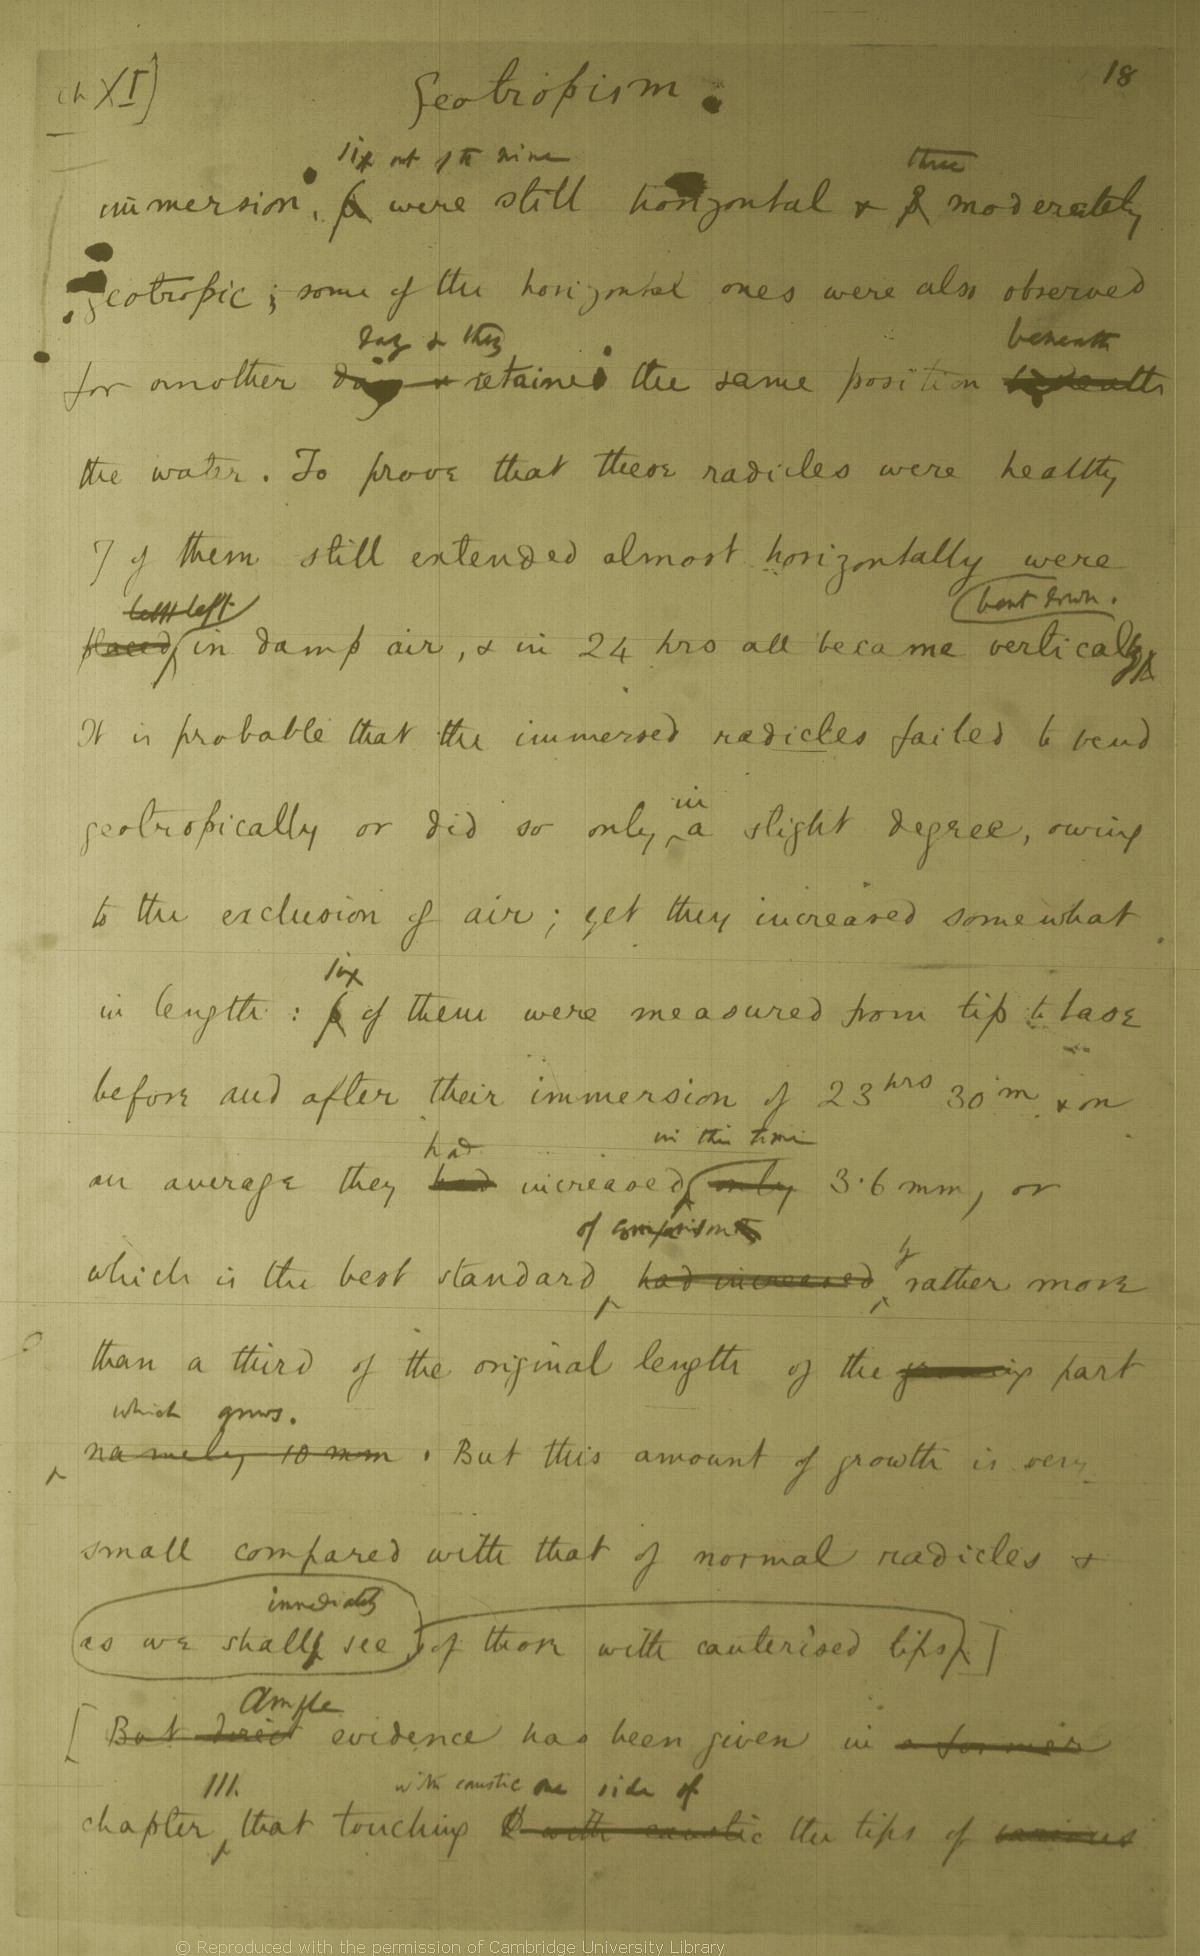 Ch XI]
Geotropism.
18
six out of the nine
three
immersion, 6 were still horizontal & 3 moderately
geotropic; some of the horizontal ones were also observed
day & they
beneath
for another day & retained the same position beneath
the water. To prove that these radicles were healthy
7 of them still extended almost horizontally were
left
bent down.
placed in damp air, & in 24 hrs all became vertically
It is probable that the immersed radicles failed to bend
in
geotropically or did so only a slight degree, owing
to the exclusion of air; yet they increased somewhat
six
in length: 6 of them were measured from tip to base
before and after their immersion of 23 hrs 30 m & on
had
in this time
an average they had increased only 3.6 mm, or
of comparison
by
which is the best standard had increased rather more
than a third of the original length of the growing part
which grows.
namely 10 mm. But this amount of growth is very
small compared with that of normal radicles &
immediately
as we shall see, of those with cauterised tips.]
Ample
[But direct evidence has been given in a former
III.
with caustic one side of
chapter that touching with caustic the tips of various
© Reproduced with the permission of Cambridge University Library